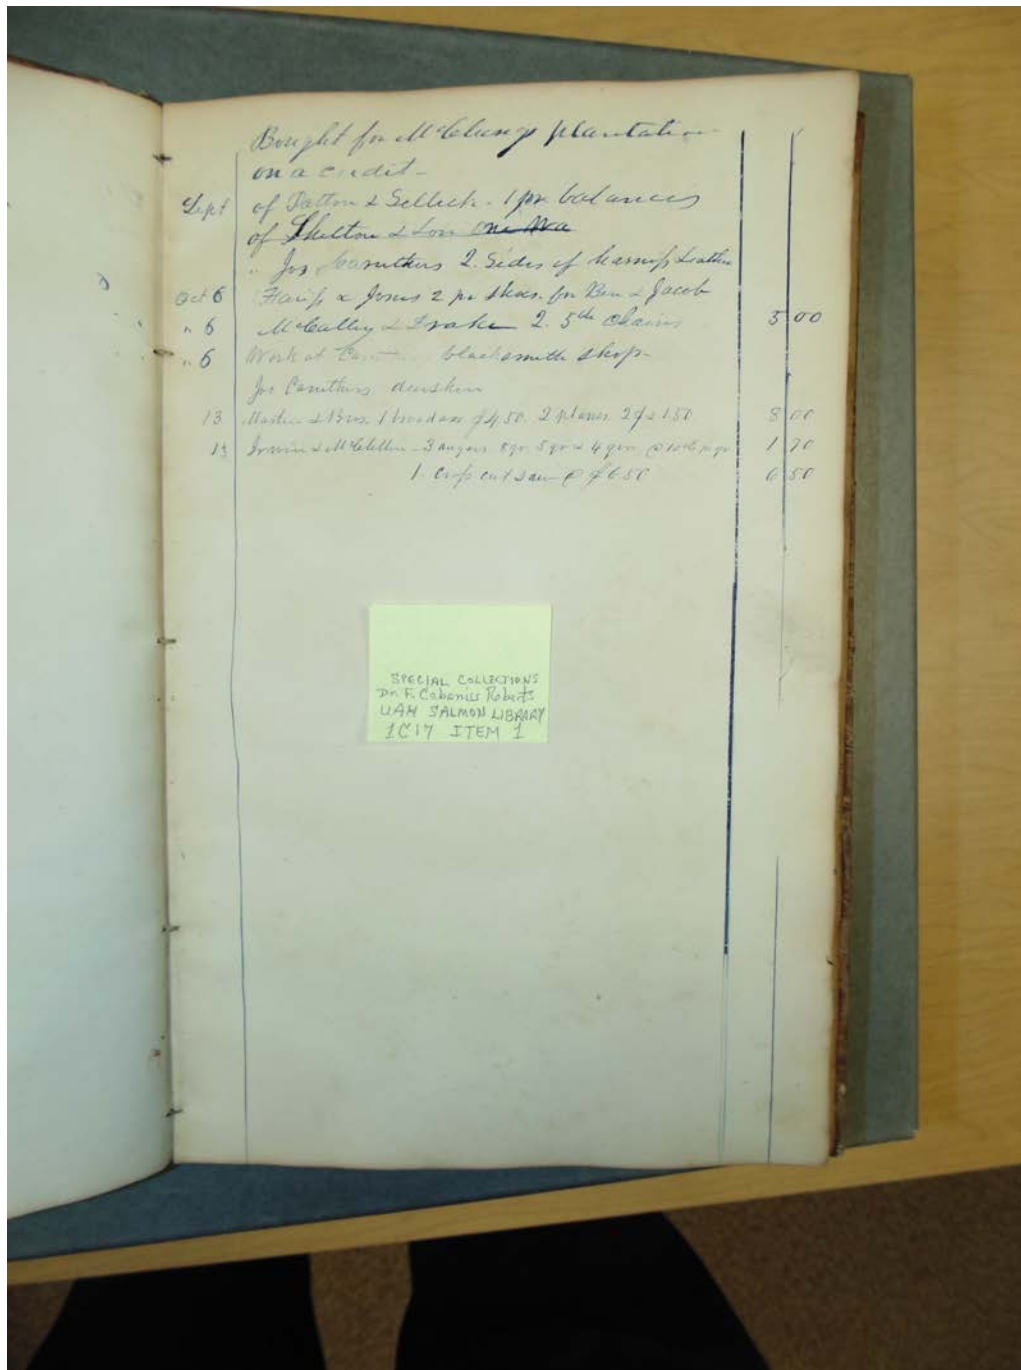 Bought for McClungs plantation
on a credit -
Sept of Patton & Selleck - 1 pr balances
of Shelton & Son one
" Jos Caruthers 2 Sides of harness Leather
Oct 6 & Jones 2 pr Shoes for Ben & Jacob
" 6 McCalley & Drake 2. 5th Chains 5 00
" 6 Work at blacksmith shop -
Jos Caruthers deerskin
13 & Bros. 1 broadaxe $4.50. 2 planes 2 $ & 1.50 8 00
13 & McClellan - 3 augers 8 qr 5 qr & 4 qr @ 1 70
1 Cross cut saw @ $6.50 6 50
SPECIAL COLLECTIONS
Dr. F. Cabaniss Roberts
UAH SALMON LIBRARY
1C17 ITEM 1